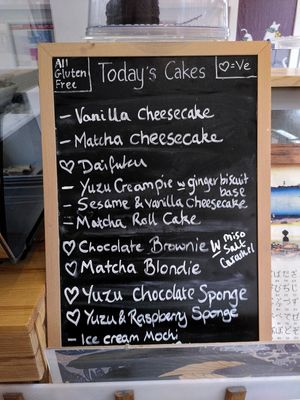 All Gluten Free
Today's Cakes
♡=Ve
– Vanilla Cheesecake
– Matcha Cheesecake
♡ Daifuku
– Yuzu Creampie w ginger biscuit base
– Sesame & Vanilla Cheesecake
– Matcha Roll Cake
♡ Chocolate Brownie w miso salt caramel
♡ Matcha Blondie
♡ Yuzu Chocolate Sponge
♡ Yuzu & Raspberry Sponge
– Ice cream Mochi